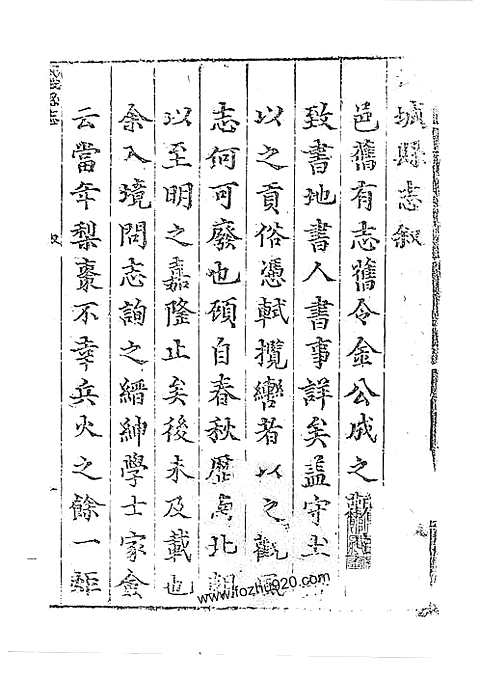 城縣志叙
邑舊有志舊令金公成之
致書地書人書事詳矣蓋守土
以之貢俗憑軾攬轡者以之觀風
志何可廢也碩自春秋歷南北朝
以至明之嘉隆止矣後未及載也
余入境問志詢之縉紳學士家僉
云當年梨棗不幸兵火之餘一
叙
www.fozhu920.com